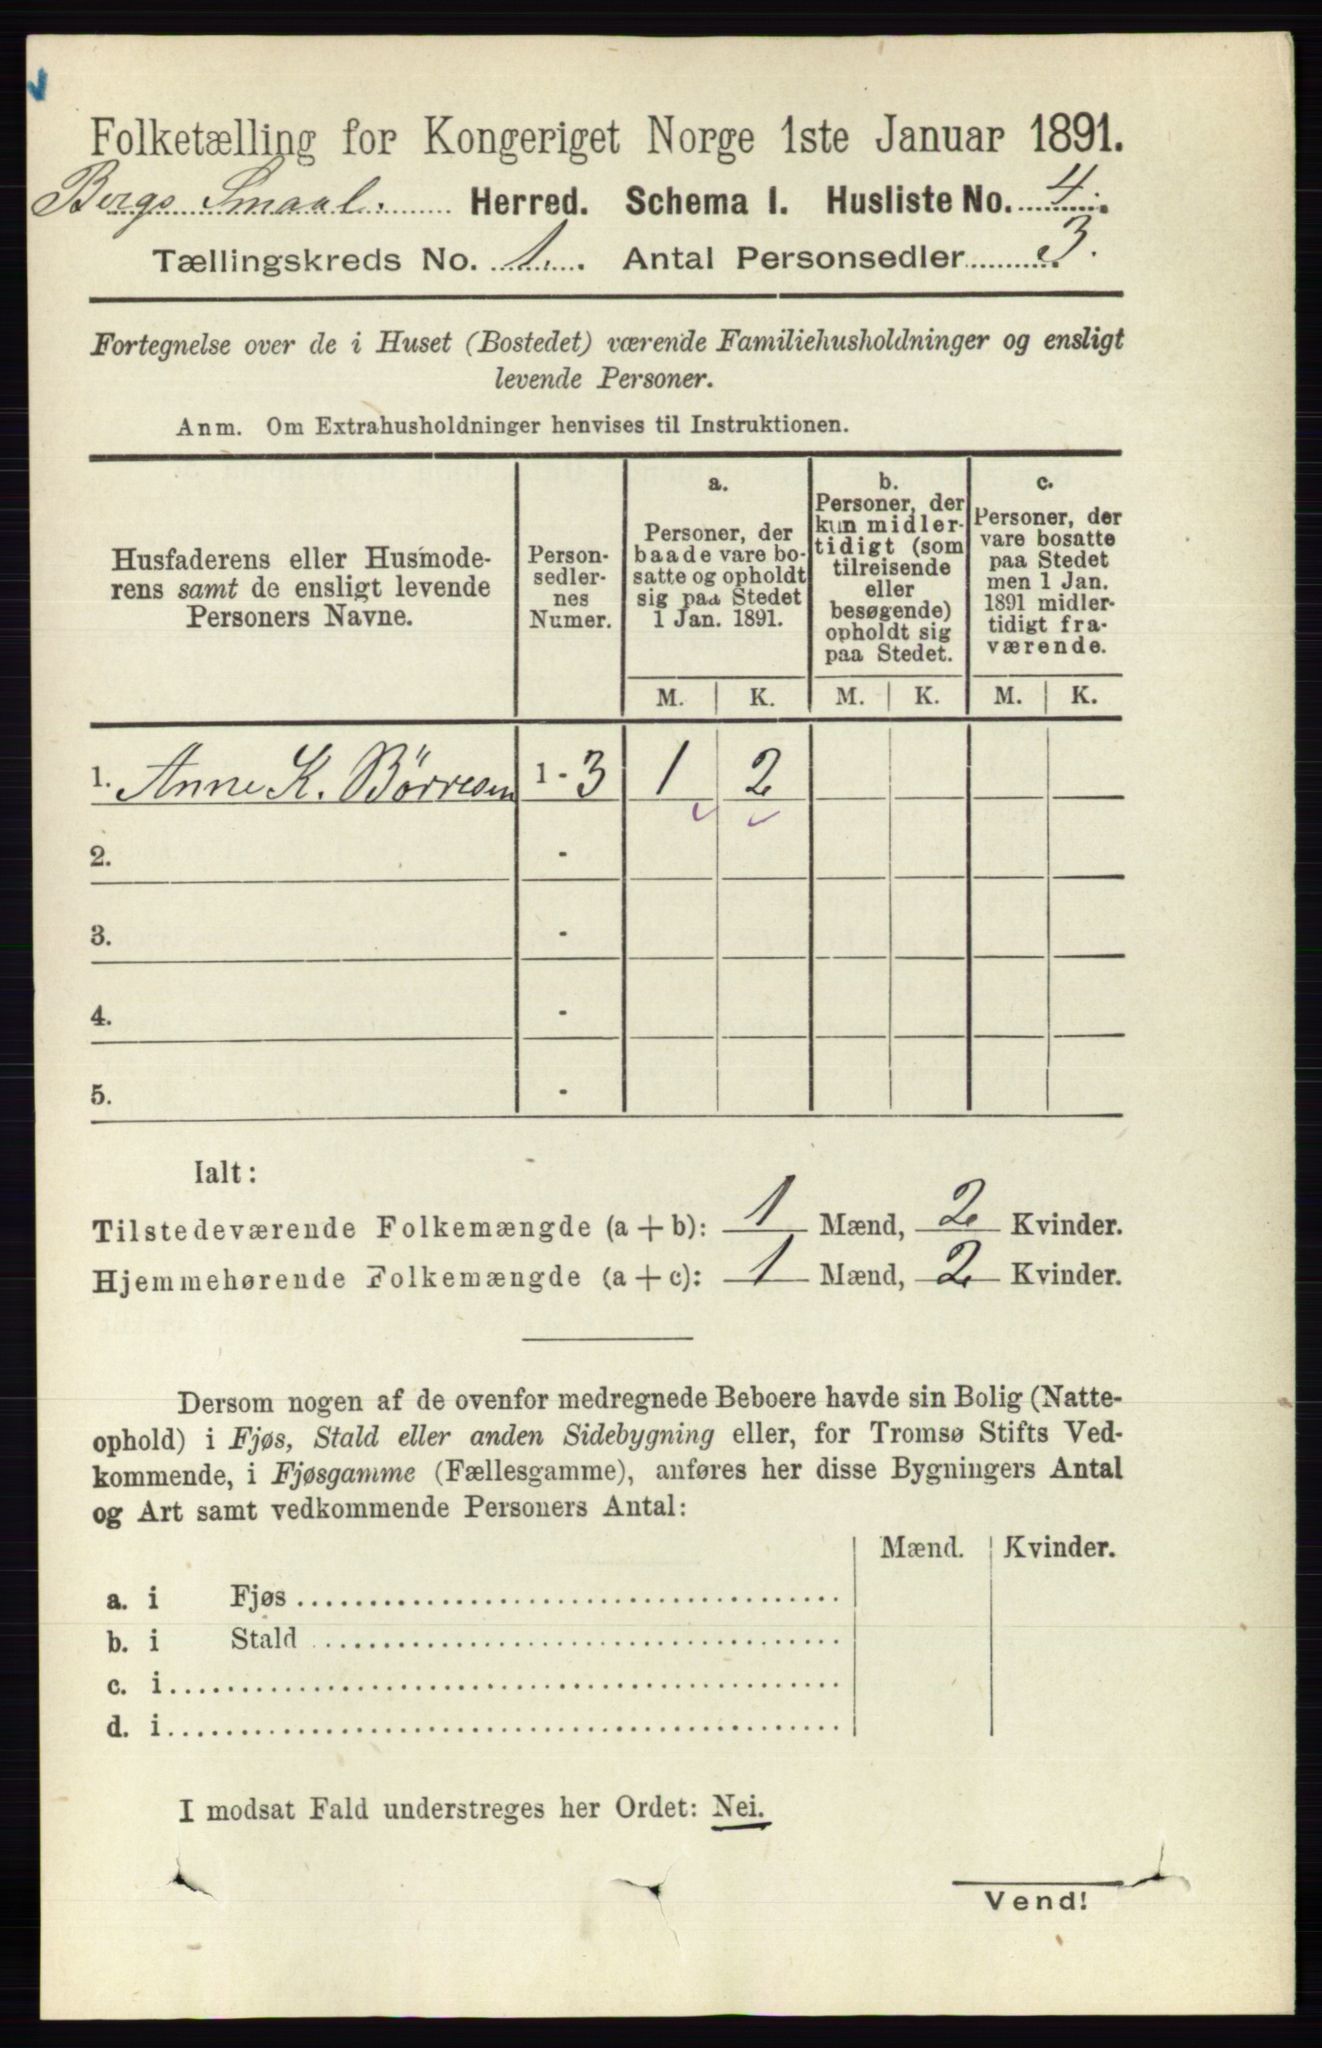 Folketælling for Kongeriget Norge 1ste Januar 1891.
Bergs Smaal. Herred. Schema I. Husliste No. 4.
Tællingskreds No. 1. Antal Personsedler 3.
Fortegnelse over de i Huset (Bostedet) værende Familiehusholdninger og ensligt
levende Personer.
Anm. Om Extrahusholdninger henvises til Instruktionen.
Husfaderens eller Husmode-
rens samt de ensligt levende
Personers Navne.
Person-
sedler-
nes
Numer.
a.
Personer, der
baade vare bo-
satte og opholdt
sig paa Stedet
1 Jan. 1891.
b.
Personer, der
kun midler-
tidigt (som
tilreisende
eller
besøgende)
opholdt sig
paa Stedet.
c.
Personer, der
vare bosatte
paa Stedet
men 1 Jan.
1891 midler-
tidigt fra-
værende.
M. K. M. K. M. K.
1. Anne K. Börresen 1 - 3 1 2
2. -
3. -
4. -
5. -
Ialt:
Tilstedeværende Folkemængde (a + b): 1 Mænd, 2 Kvinder.
Hjemmehørende Folkemængde (a + c): 1 Mænd, 2 Kvinder.
Dersom nogen af de ovenfor medregnede Beboere havde sin Bolig (Natte-
ophold) i Fjøs, Stald eller anden Sidebygning eller, for Tromsø Stifts Ved-
kommende, i Fjøsgamme (Fællesgamme), anføres her disse Bygningers Antal
og Art samt vedkommende Personers Antal:
Mænd. Kvinder.
a. i Fjøs
b. i Stald
c. i
d. i
I modsat Fald understreges her Ordet: Nei.
Vend!